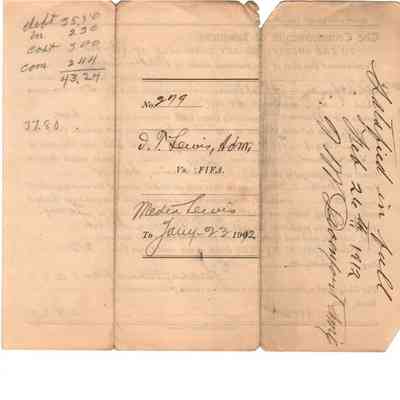 debt 35.50
in 2.30
cost 3.00
com 2.44
43.24
37.80
No. 279
D. T. Lewis, Adm,
Vs. FIFA.
Media Lewis
To Jany 23 1912
Satisfied in full
Feb 26th 1912